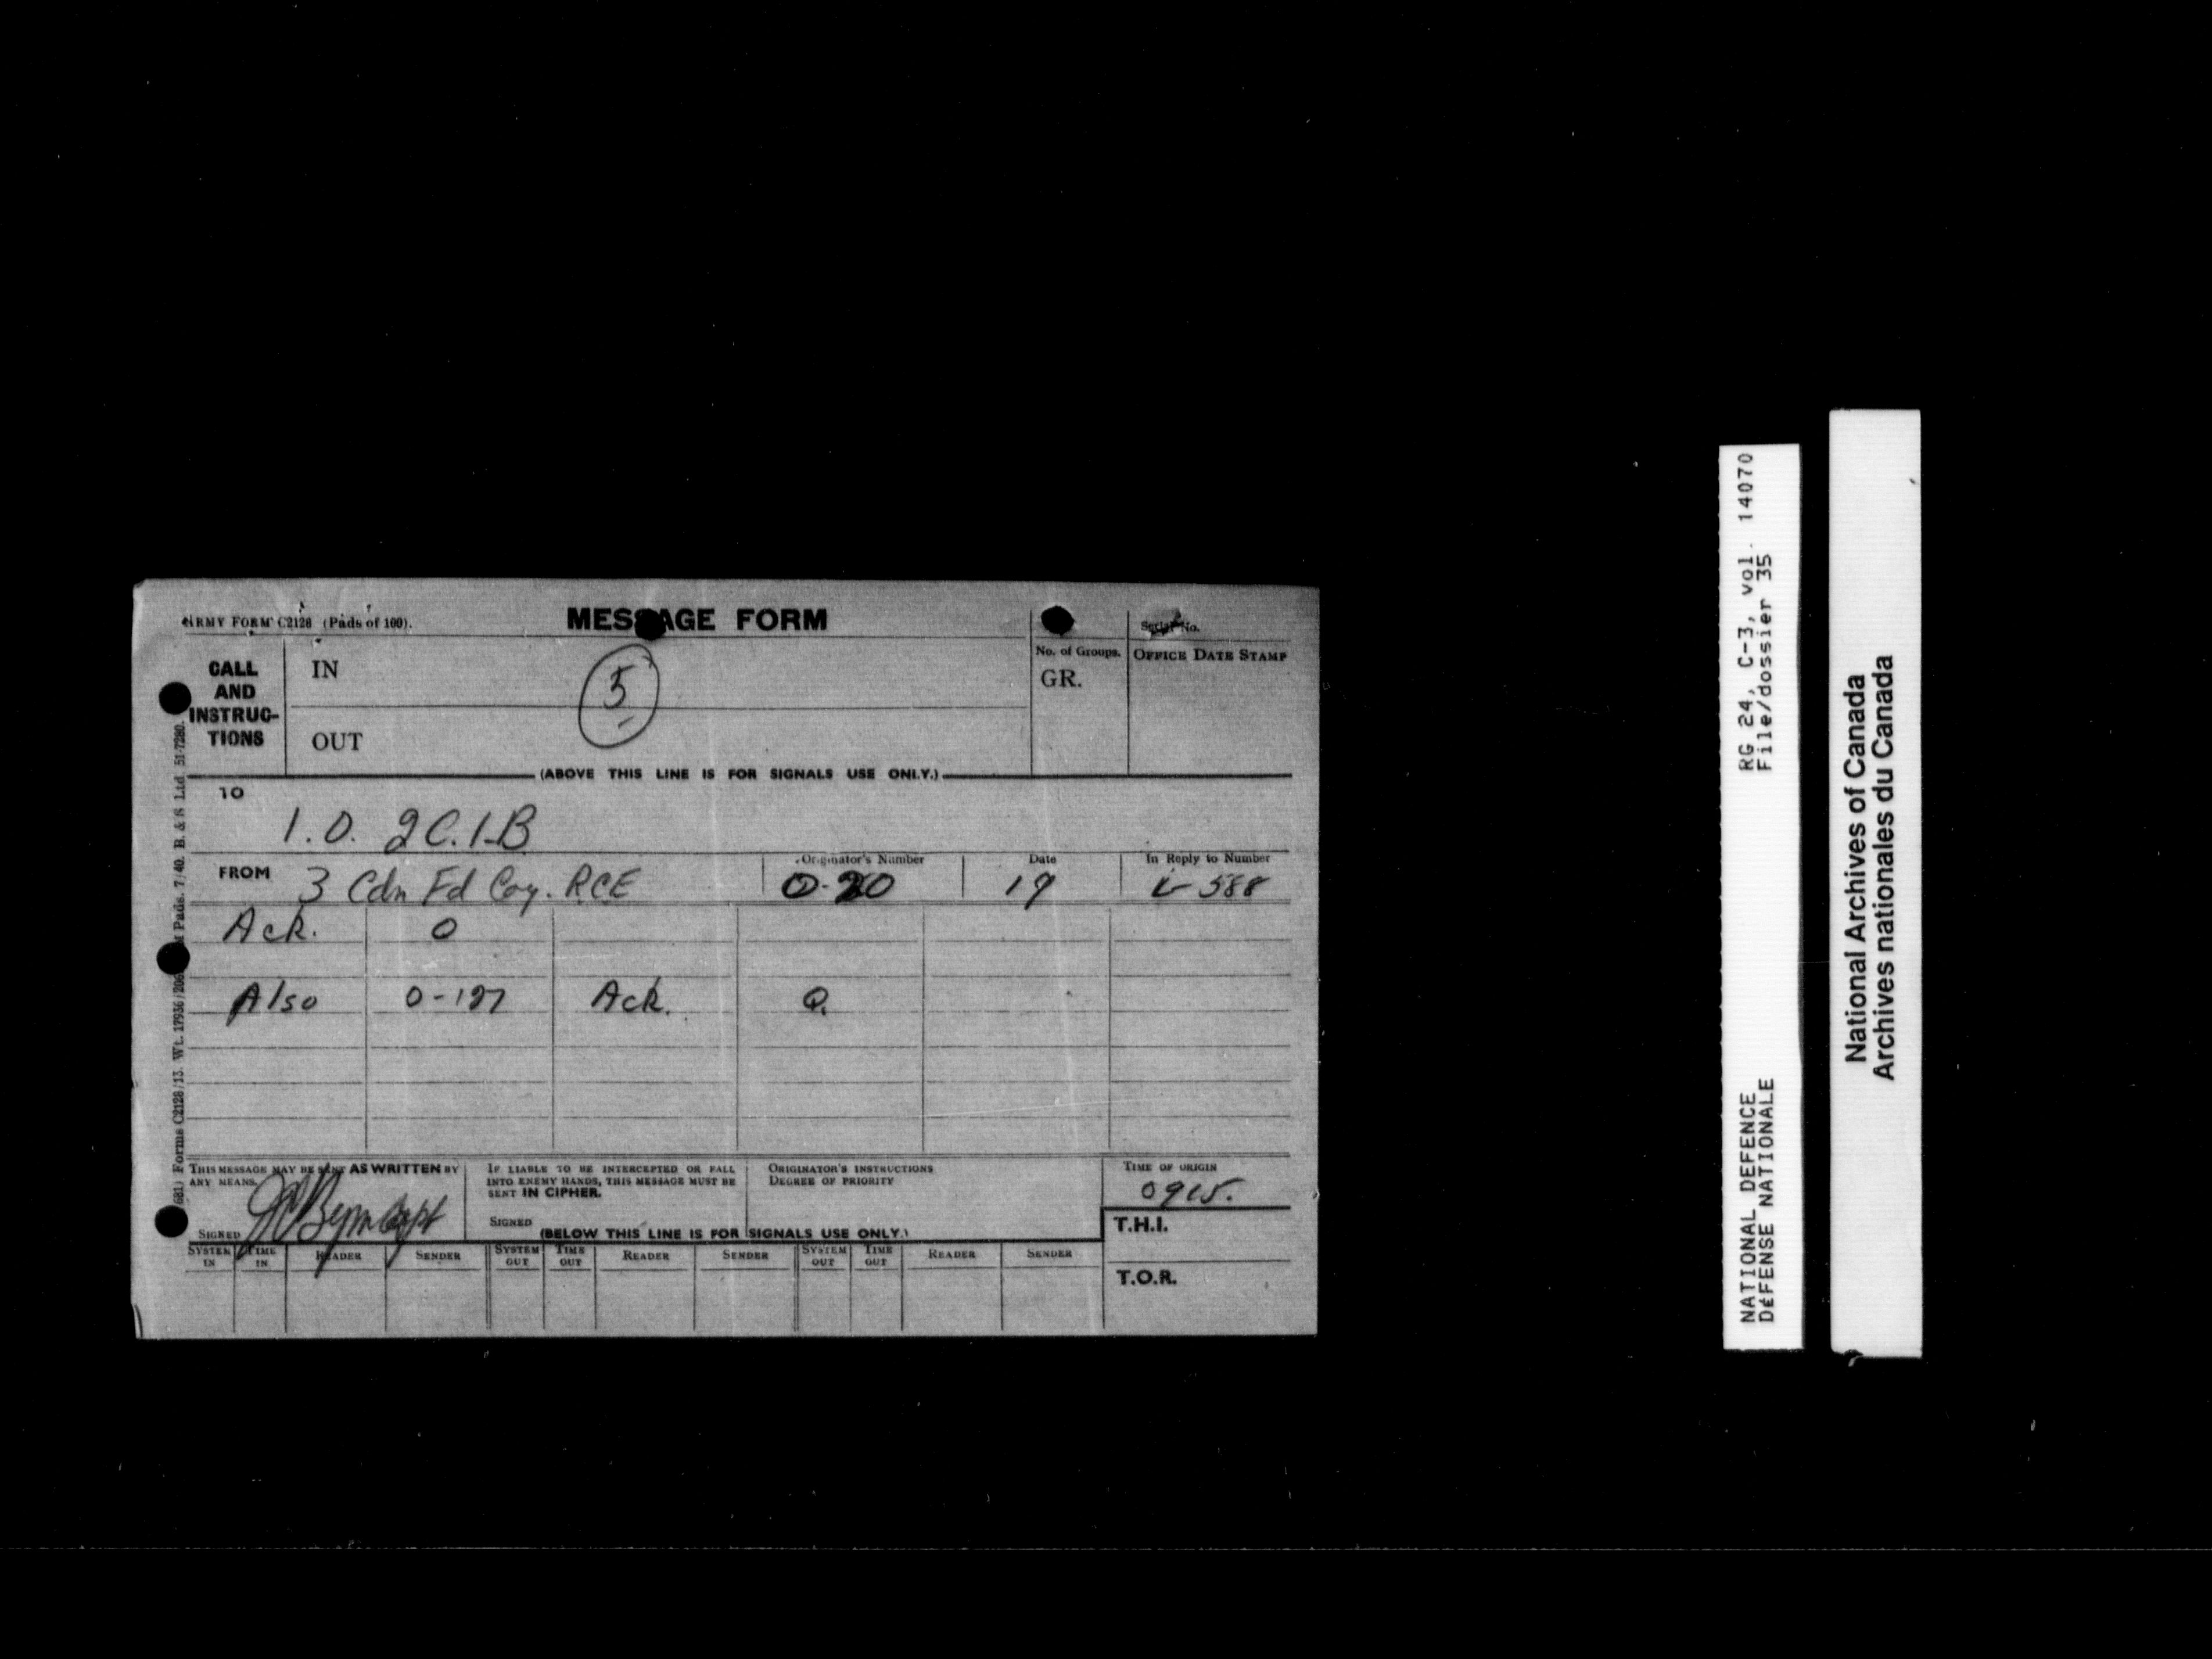 ARMY FORM C2128 (Pads of 100).
MESSAGE FORM
Serial No.
CALL AND INSTRUC-TIONS
IN
5
OUT
No. of Groups.
GR.
OFFICE DATE STAMP
(ABOVE THIS LINE IS FOR SIGNALS USE ONLY.)
TO
I.O. 2C.I.B
FROM 3 Cdn Fd Coy. RCE
Originator's Number
O-20
Date
19
In Reply to Number
588
Ack. O
Also O-127 Ack. O.
THIS MESSAGE MAY BE SENT AS WRITTEN BY
ANY MEANS.
SIGNED Capt
IF LIABLE TO BE INTERCEPTED OR FALL
INTO ENEMY HANDS, THIS MESSAGE MUST BE
SENT IN CIPHER.
SIGNED
ORIGINATOR'S INSTRUCTIONS
DEGREE OF PRIORITY
TIME OF ORIGIN
0915.
(BELOW THIS LINE IS FOR SIGNALS USE ONLY.)
T.H.I.
SYSTEM IN TIME IN READER SENDER SYSTEM OUT TIME OUT READER SENDER SYSTEM OUT TIME OUT READER SENDER
T.O.R.
681) Forms C2128/13. Wt. 17936/206 Pads. 7/40. B. & S Ltd. 51-7280.
NATIONAL DEFENCE RG 24, C-3, vol. 14070
DÉFENSE NATIONALE File/dossier 35
National Archives of Canada
Archives nationales du Canada